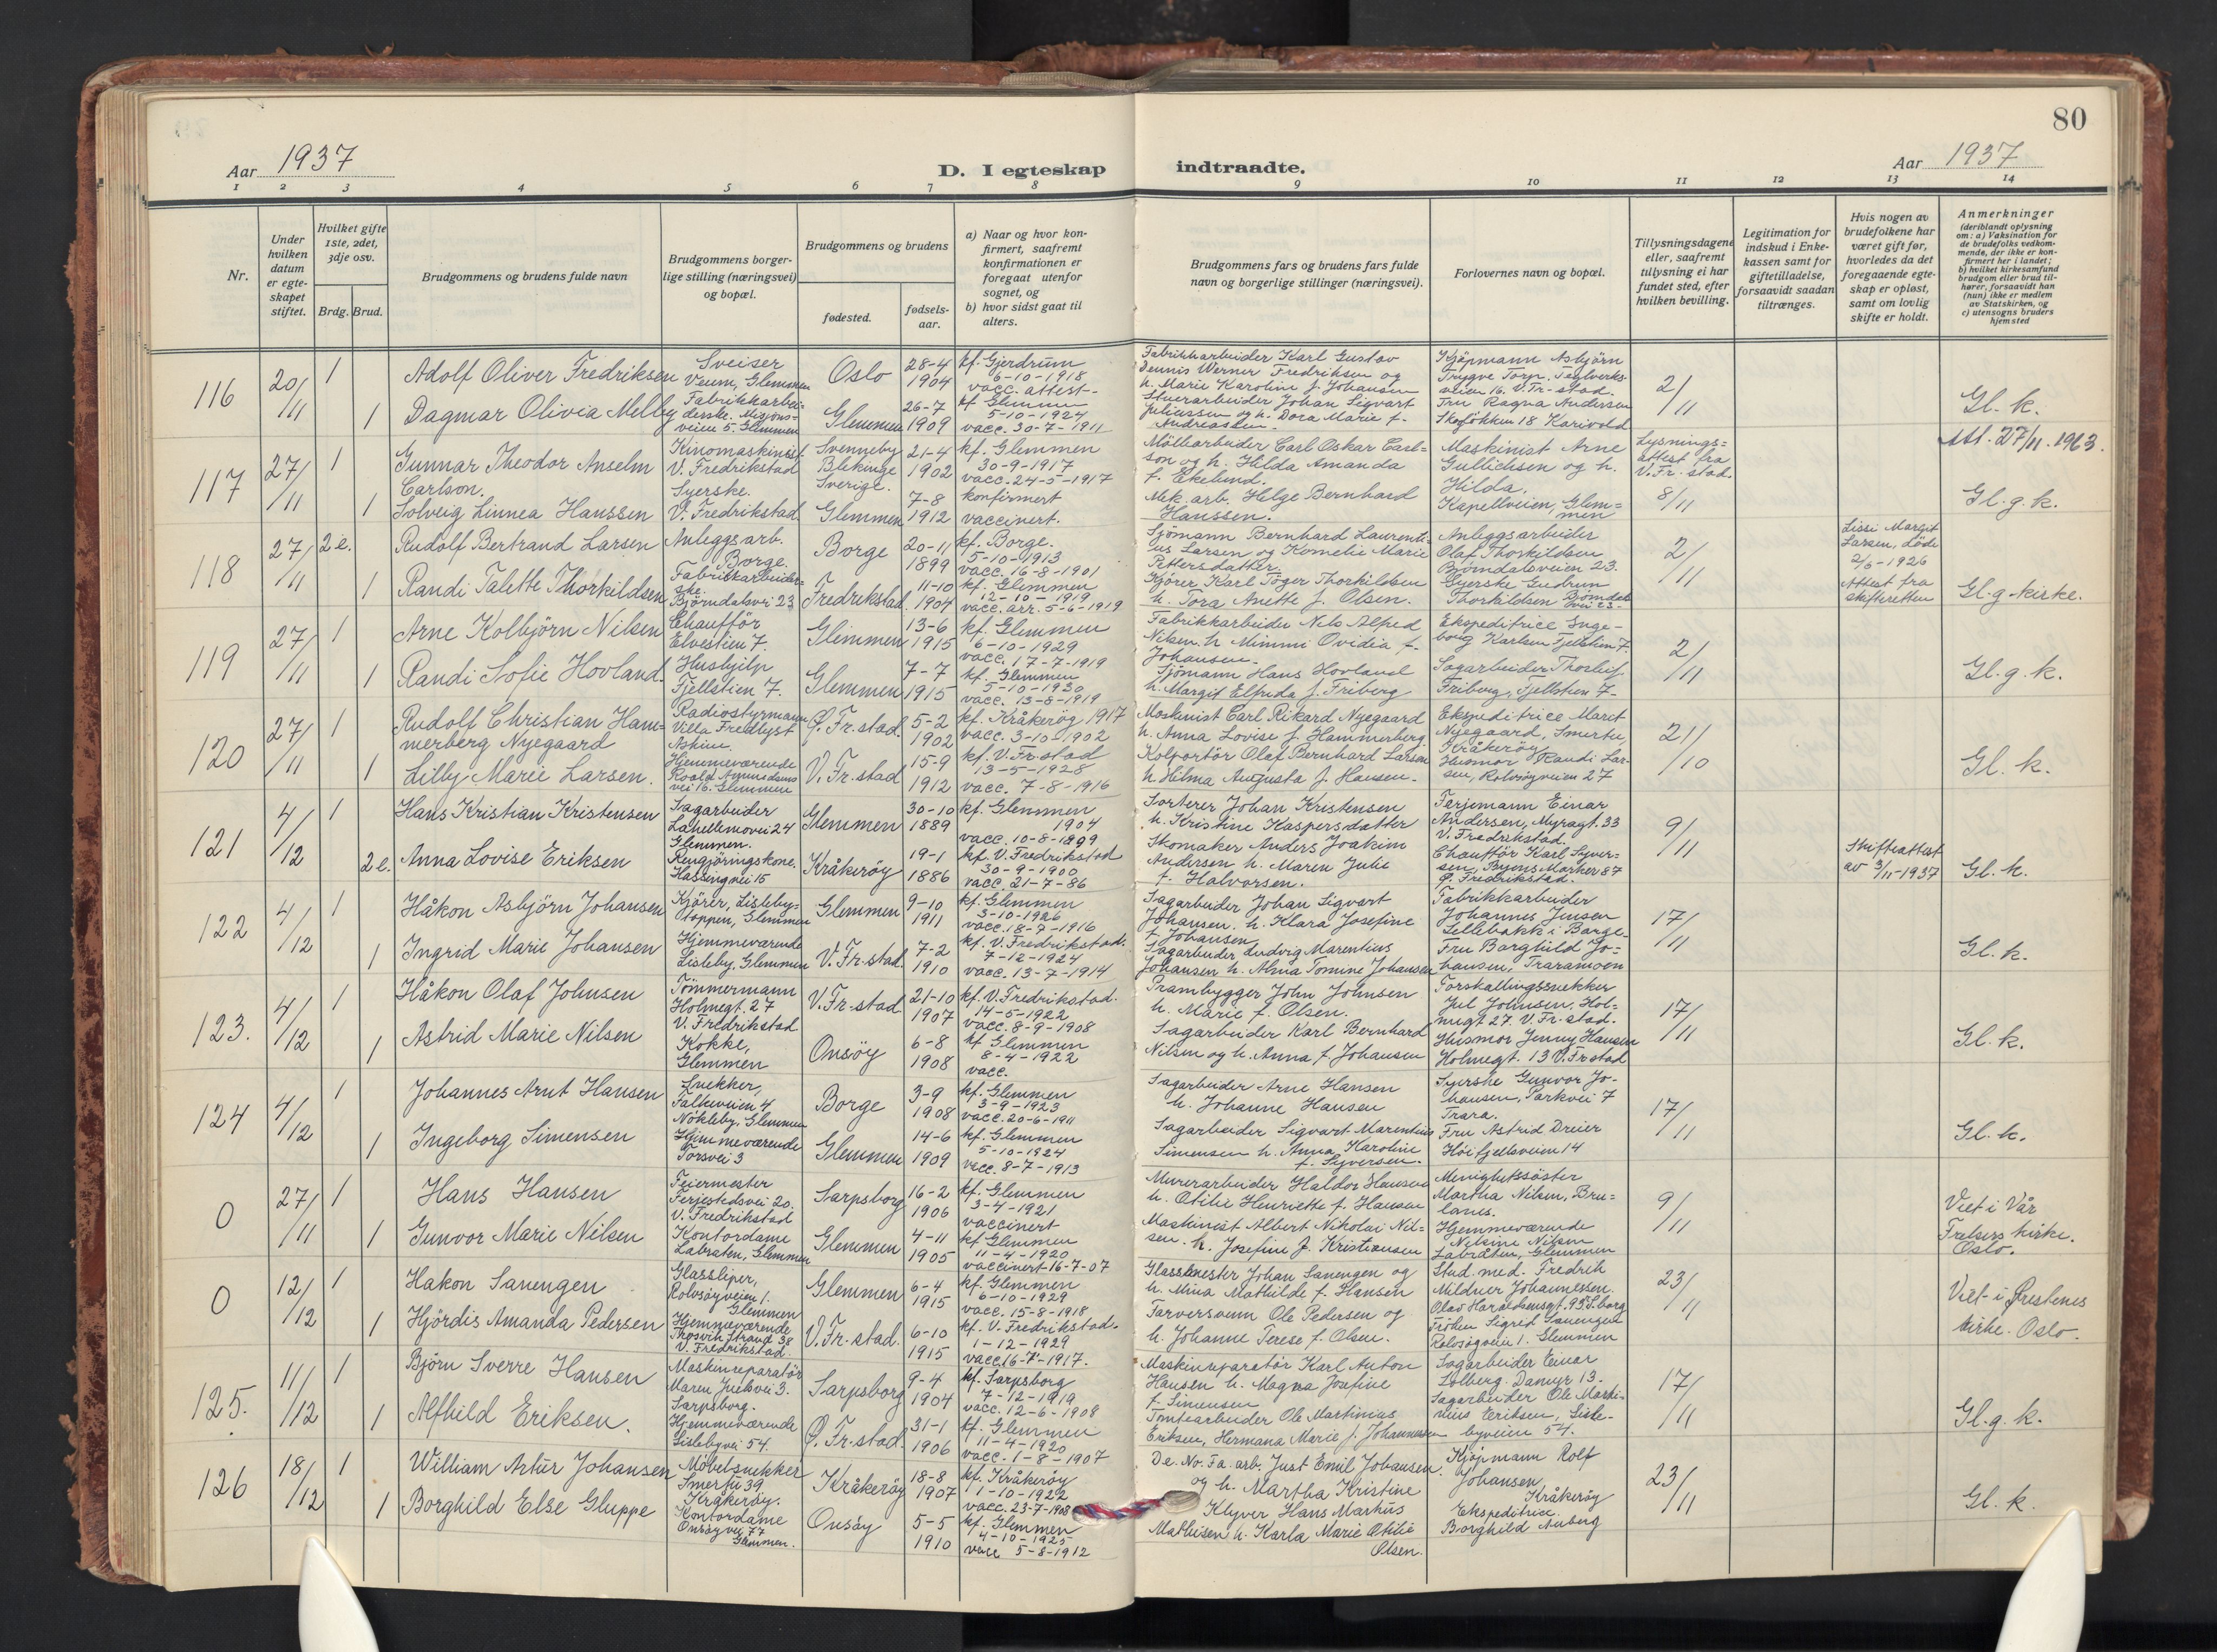 80
Aar 1937
D. I egteskap indtraadte.
Aar 1937
1 2 3 4 5 6 7 8 9 10 11 12 13 14
Nr.
Under hvilken datum er egte-skapet stiftet.
Hvilket gifte 1ste, 2det, 3dje osv.
Brdg. Brud.
Brudgommens og brudens fulde navn
Brudgommens borger-lige stilling (næringsvei) og bopæl.
Brudgommens og brudens
fødested.
fødsels-aar.
a) Naar og hvor kon-firmert, saafremt konfirmationen er foregaat utenfor sognet, og
b) hvor sidst gaat til alters.
Brudgommens fars og brudens fars fulde navn og borgerlige stillinger (næringsvei).
Forlovernes navn og bopæl.
Tillysningsdagene eller, saafremt tillysning ei har fundet sted, efter hvilken bevilling.
Legitimation for indskud i Enke-kassen samt for giftetilladelse, forsaavidt saadan tiltrænges.
Hvis nogen av brudefolkene har været gift før, hvorledes da det foregaaende egte-skap er opløst, samt om lovlig skifte er holdt.
Anmerkninger (deriblandt oplysning om: a) Vaksination for de brudefolks vedkom-mende, der ikke er kon-firmert her i landet; b) hvilket kirkesamfund brudgom eller brud til-hører, forsaavidt han (hun) ikke er medlem av Statskirken, og c) utensogns bruders hjemsted
116
20/11
1
Adolf Oliver Fredriksen
Sveiser
Veum, Glemmen
Oslo
28-4
1904
kf. Gjerdrum
6-10-1918
vacc. attest-
Fabrikkarbeider Karl Gustav
Dennis Werner Fredriksen og
h. Marie Karoline f. Johansen
Kjöpmann Asbjörn
Trygve Torp. Teglverks-
veien 16. V. Fr-stad.
2/11
1
Dagmar Olivia Melby
Fabrikkarbei-
derske. Misjons-
veien 5. Glemmen
Glemmen
26-7
1909
kf Glemmen
5-10-1924
vacc. 30-7-1911
Stuerarbeider Johan Sigvart
Juliussen og h. Dora Marie f.
Andreassen-
Fru Ragna Andersen
Skogløkken 18 Karivold
Gl. k.
Att. 27/11.1963.
117
27/11
1
Gunnar Theodor Anselm
Carlson.
Kinomaskinist
V. Fredrikstad
Svenneby
Blekinge
Sverige.
21-4
1902
kf. Glemmen
30-9-1917
vacc. 24-5-1917
Möllearbeider Carl Oskar Carl=
son og h. Hilda Amanda
f. Ekelund.
Maskinist Arne
Gullichsen og h.
Hilda,
Kapellveien, Glem=
men
Lysnings=
attest fra
V. Fr. stad.
8/11
1
Solveig Linnea Hanssen
Syerske.
V. Fredrikstad.
Glemmen
7-8
1912
konfirmert
vaccinert.
Mek. arb. Helge Bernhard
Hanssen.
Gl. g. k.
118
27/11
2 e.
Rudolf Bertrand Larsen
Anleggsarb.
Borge.
Borge
20-11
1899
kf. Borge.
5-10-1913
vacc. 16-8-1901
Sjömann Bernhard Laurenti-
us Larsen og Kornelie Marie
Pettersdatter.
Anleggsarbeider
Olaf Thorkildsen
Bjørndalsveien 23.
2/11
Lissi Margit
Larsen, döde
2/6-1926
Attest fra
skifteretten
1
Randi Talette Thorkildsen
Fabrikkarbeider-
ske.
Björndalsvei 23
Fredrikstad
11-10
1904
kf. Glemmen
12-10-1919
vacc. arr. 5-6-1919
Kjörer Karl Töger Thorkildsen
h. Tora Anette f. Olsen.
Syerske Gudrun
Thorkildsen Bjørndals
vei 23.
Gl-g-kirke.
119
27/11
1
Arne Kolbjörn Nilsen
Chaufför
Elvestien 7.
Glemmen
13-6
1915
kf. Glemmen
6-10-1929
vacc. 17-7-1919
Fabrikkarbeider Nils Alfred
Nilsen. h Mimmi Ovidia f.
Johansen.
Ekspeditrice Inge-
borg Karlsen Fjellstien 7.
2/11
1
Randi Sofie Hovland.
Hushjelp
Fjellstien 7.
Glemmen
7-7
1915
kf. Glemmen
5-10-1930
vacc. 13-8-1919
Sjömann Hans Hovland
h. Margit Elfrida f. Friberg
Sagarbeider Thorleif
Friberg, Fjellstien 7-
Gl. g. k.
120
27/11
1
Rudolf Christian Ham=
merberg Nyegaard
Radiostyrmann
Villa Fredlyst
Askim.
Ø. Fr. stad.
5-2
1902
kf. Kråkeröy 1917
vacc. 3-10-1902
Maskinist Carl Rikard Nyegaard
h. Anna Lovise f. Hammerberg
Ekspeditrice Marit
Nyegaard, Smertu,
Kråkeröy
21/10
1
Lilly Marie Larsen.
Hjemmeværende
Roald Amundsens
vei 16. Glemmen
V. Fr. stad
15-9
1912
kf. V. Fr. stad
13-5-1928
vacc. 7-8-1916
Kolportör Olaf Bernhard Larsen
h. Hilma Augusta f. Hansen.
Husmor Randi Lar-
sen, Rolvsøyveien 27
Gl. k.
121
4/12
1
Hans Kristian Kristensen
Sagarbeider
Lahellemovei 24
Glemmen.
Glemmen
30-10
1889
kf. Glemmen
1904
vacc. 10-8-1899
Sorterer Johan Kristensen
h. Kristine Kaspersdatter
Ferjemann Einar
Andersen, Myragt. 33
V. Fredrikstad.
9/11
2 e.
Anna Lovise Eriksen
Rengjöringskone.
Hassingvei 15
Kråkeröy
19-1
1886
kf. V. Fredrikstad
30-9-1900
vacc. 21-7-86
Skomaker Anders Joakim
Andersen h. Maren Julie
f. Halvorsen.
Chaufför Karl Syver-
sen, Byens Marker 87
Ø. Fredrikstad.
Skifteattest
av 3/11-1937
Gl. k.
122
4/12
1
Håkon Asbjörn Johansen
Kjörer, Lisleby-
toppen, Glemmen
Glemmen
9-10
1911
kf. Glemmen
3-10-1926
vacc. 18-7-1916
Sagarbeider Johan Sigvart
Johansen. h. Klara Josefine
f. Johansen
Fabrikkarbeider
Johannes Jensen
Sellebakk i Borge.
17/11
1
Ingrid Marie Johansen
Hjemmeværende
Lisleby, Glemmen
V. Fr. stad.
7-2
1910
kf. V. Fredrikstad.
7-12-1924
vacc. 13-7-1914
Sagarbeider Ludvig Marentius
Johansen h. Alma Tomine Johansen
Fru Borghild Jo-
hansen, Traramoen
Gl. k.
123.
4/12
1
Håkon Olaf Johnsen
Tömmermann
Holmegt. 27
V. Fredrikstad
V. Fr. stad
21-10
1907
kf. V. Fredrikstad.
14-5-1922
vacc. 8-9-1908
Prambygger John Johnsen
h. Marie f. Olsen.
Forskallingssnekker
Jul Johnsen, Hol-
megt 27. V. Fr. stad.
17/11
1
Astrid Marie Nilsen
Kokke,
Glemmen
Onsöy
6-8
1908
kf Glemmen
8-4-1922
vacc.
Sagarbeider Karl Bernhard
Nilsen og h. Anna f Johansen
Husmor Jenny Hansen
Holmegt. 13 V. Frstad
Gl. k.
124
4/12
1
Johannes Arnt Hansen
Snekker,
Falkeveien 4
Nökleby, Glemmen
Borge
3-9
1908
kf. Glemmen
3-9-1923
vacc. 20-6-1911
Sagarbeider Arne Hansen
h. Johanne Hansen
Syerske Gunvor Jo-
hansen, Parkvei 7
Trara.
17/11
1
Ingeborg Simensen
Hjemmeværende
Torsvei 3
Glemmen
14-6
1909
kf. Glemmen
5-10-1924
vacc. 8-7-1913
Sagarbeider Sigvart Marentius
Simensen h. Anna Karoline
f. Syversen.
Fru Astrid Dreier
Höifjellsveien 14
Gl. k.
0
27/11
1
Hans Hansen
Feiermester
Ferjestedsvei 20.
V. Fredrikstad
Sarpsborg
16-2
1906
kf. Glemmen
3-4-1921
vaccinert
Murerarbeider Haldor Hansen
h. Otilie Henriette f. Hansen
Menighetssöster
Martha Nilsen, Bru-
lanes.
9/11
1
Gunvor Marie Nilsen
Kontordame
Labraten, Glemmen
Glemmen
4-11
1905
kf Glemmen
11-4-1920
vaccinert 16-7-07
Maskinist Albert Nikolai Nil=
sen. h. Josefine f. Kristiansen
Hjemmeværende
Nelsine Nilsen
Labråten, Glemmen
Viet i Vår
Frelsers kirke.
Oslo.
0
12/12
1
Hakon Sanengen
Glassliper,
Rolvsöyveien 1.
Glemmen
Glemmen
6-4
1915
kf Glemmen
6-10-1929
vacc. 15-8-1918
Glassmester Johan Sanengen og
h. Mina Mathilde f. Hansen
Stud. med. Fredrik
Mildner Johannesen.
Olav Haraldsensgt. 95. S.borg
23/11
1
Hjördis Amanda Pedersen
Hjemmeværende
Trosvik Strand 38
V. Fredrikstad.
V. Fr. stad.
6-10
1915
kf. V. Fredrikstad.
1-12-1929
vacc. 16-7-1917.
Farversvenn Ole Pedersen og
h. Johanne Terese f. Olsen.
Fröken Sigrid Sanengen
Rolvsøyvein 1. Glemmen
Viet i Prestenes
kirke. Oslo.
125.
11/12
1
Björn Sverre Hansen
Maskinreparatör
Maren Juelsvei 3.
Sarpsborg.
Sarpsborg
9-4
1904
kf. Sarpsborg
7-12-1919
vacc. 12-6-1908
Maskinreparatör Karl Anton
Hansen h. Magna Josefine
f. Simensen
Sagarbeider Einar
Solberg. Damyr 13.
17/11
1
Alfhild Eriksen.
Hjemmeværende
Lislebyvei 54.
Ø. Fr. stad.
31-1
1906
kf. Glemmen
11-4-1920
vacc. 1-8-1907
Tomtearbeider Ole Martinius
Eriksen, Hermana Marie f. Johannessen
Sagarbeider Ole Marti-
nius Eriksen, Lisle-
byveien 54.
Gl. g. k.
126
18/12
1
William Artur Johansen
Möbelsnekker
Smertu 39
Kråkeröy.
Kråkeröy
18-8
1907
kf. Kråkeröy
1-10-1922
vacc. 23-7-1908
De. No. Fa. arb. Just Emil Johansen
og h. Martha Kristine
Kjöpmann Rolf
Johansen,
Kråkeröy
23/11
1
Borghild Else Gluppe
Kontordame
Onsöy vei 77
Glemmen.
Onsöy
5-5
1910
kf. Glemmen
4-10-1925
vacc 5-8-1912
Klyver Hans Markus
Mathisen h. Karla Marie Otilie
Olsen.
Ekspeditrise
Borghild Auberg
Gl. k.